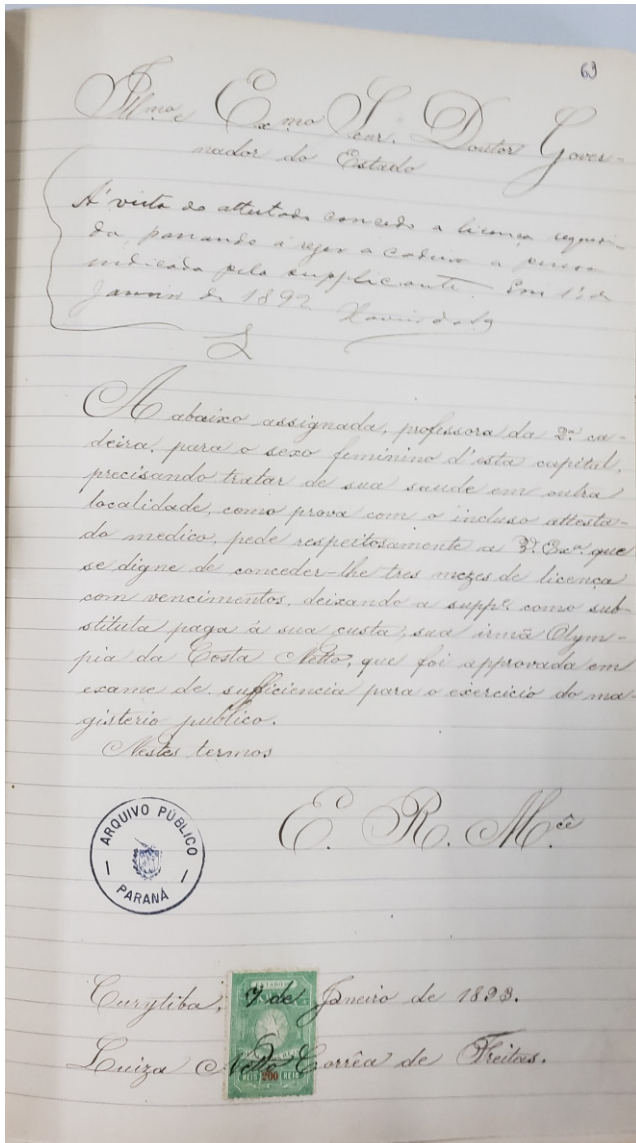 63
Illmo, Exmo Senr. Doutor Gover-
nador do Estado
Á vista do attestado concedo a licença requeri-
da, passando a reger a cadeira a pessoa
indicada pela supplicante. Em 13 de
Janeiro de 1892
A abaixo assignada, professora da 2ª. ca-
deira, para o sexo feminino d'esta capital,
precisando tratar de sua saude em outra
localidade, como prova com o incluso attesta-
do medico, pede respeitosamente a V. Exª. que
se digne de conceder-lhe tres mezes de licença
com vencimentos, deixando a suppe. como sub-
stituta paga á sua custa, sua irmã Olym-
pia da Costa Netto, que foi approvada em
exame de sufficiencia para o exercicio do ma-
gisterio publico.
Nestes termos
E. R. Mcê
ARQUIVO PÚBLICO
PARANÁ
Curytiba, 7 de Janeiro de 1893.
Luiza Netto Corrêa de Freitas.
REIS 200 REIS